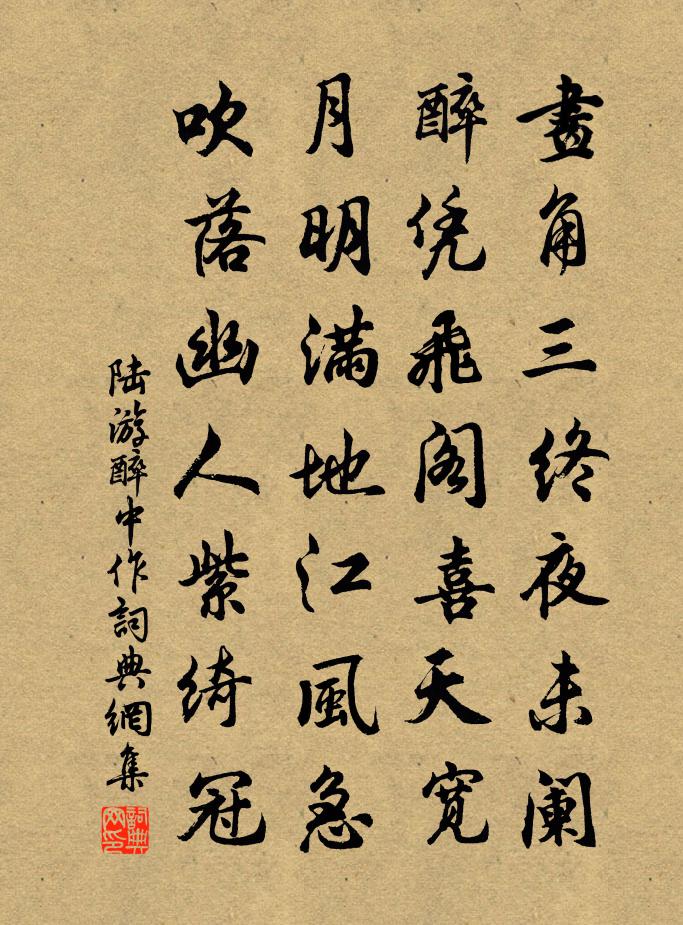 畫角三終夜未阑
醉凭飛阁喜天寬
月明滿地江風急
吹落幽人紫绮冠
陆游醉中作詞典網集
詞典网印